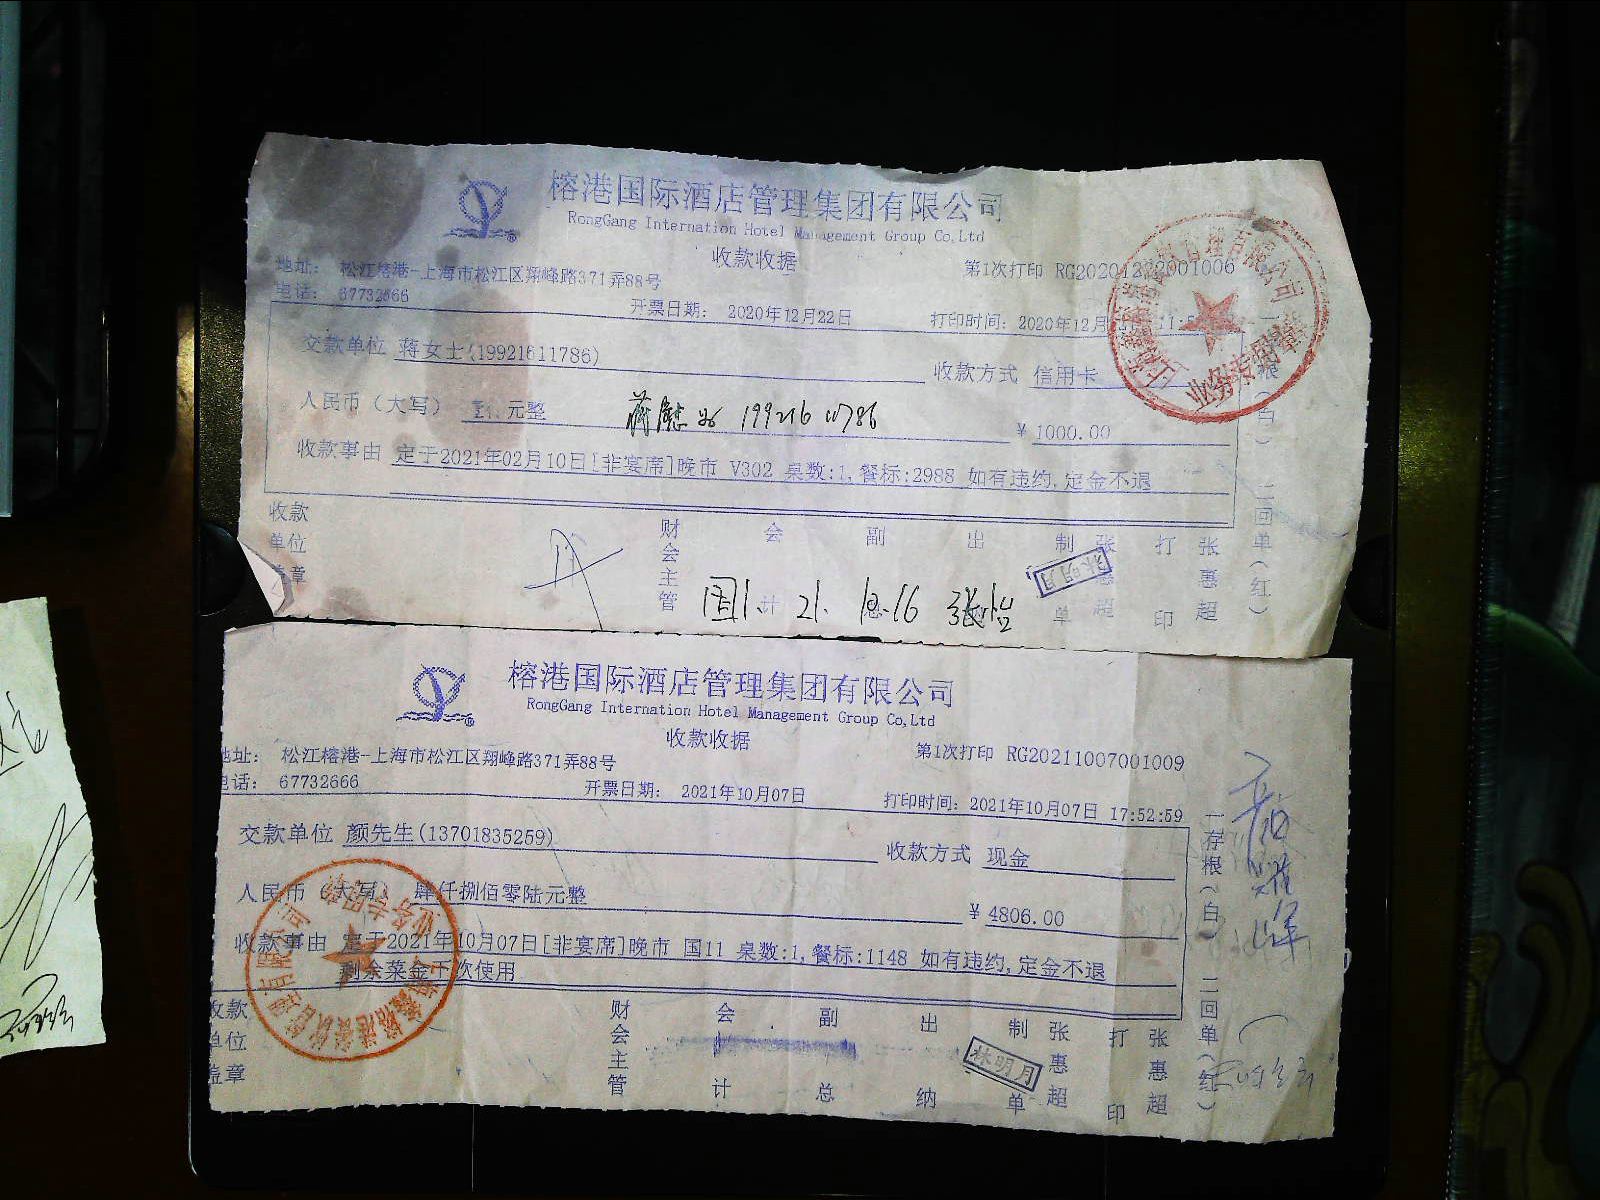 榕港国际酒店管理集团有限公司
RongGang Internation Hotel Management Group Co,Ltd
收款收据
地址： 松江榕港-上海市松江区翔峰路371弄88号 第1次打印 RG20201222001006
电话： 67732666 开票日期： 2020年12月22日 打印时间：2020年12月
交款单位 蒋女士(19921611786) 收款方式 信用卡
人民币（大写） 元整 19921611786 ¥ 1000.00
收款事由 定于2021年02月10日[非宴席]晚市 V302 桌数:1,餐标:2988 如有违约,定金不退
收款单位盖章 财会主管 会计 副总 出 制单 张惠超 打印 张惠超
林明月
国1. 21. 10.16 张怡
根（白） 二回单（红）
业务专用章
榕港国际酒店管理集团有限公司
RongGang Internation Hotel Management Group Co,Ltd
收款收据
地址： 松江榕港-上海市松江区翔峰路371弄88号 第1次打印 RG20211007001009
电话： 67732666 开票日期： 2021年10月07日 打印时间：2021年10月07日 17:52:59
交款单位 颜先生(13701835259) 收款方式 现金
人民币（大写） 肆仟捌佰零陆元整 ¥ 4806.00
收款事由 定于2021年10月07日[非宴席]晚市 国11 桌数:1,餐标:1148 如有违约,定金不退
剩余菜金下次使用
收款单位盖章 财会主管 会计 副总 出纳 制单 张惠超 打印 张惠超
林明月
一存根（白） 二回单（红）
业务专用章